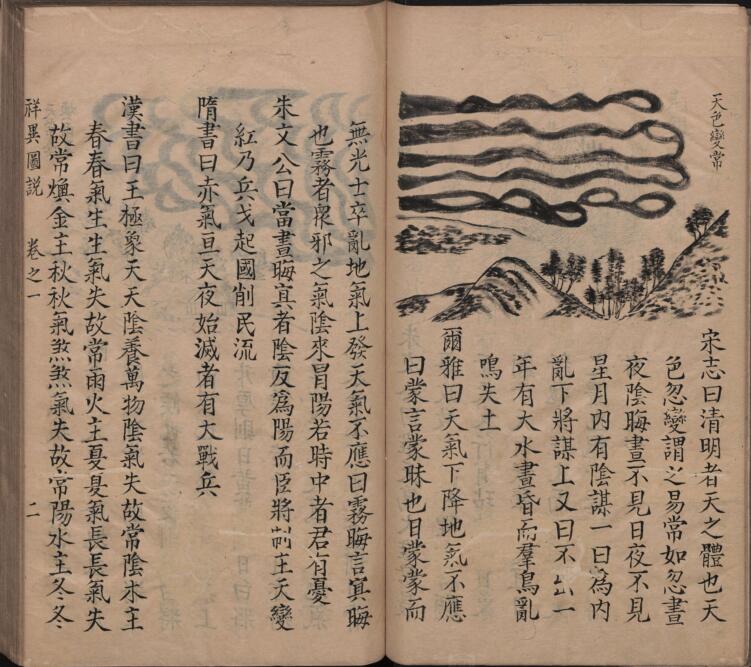 天色變常
宋志曰清明者天之體也天
色忽變謂之易常如忽晝
夜陰晦晝不見日夜不見
星月內有陰謀一曰為內
亂下將謀上又曰不出一
年有大水晝昏而羣鳥亂
鳴失土
爾雅曰天氣下降地氣不應
曰蒙言蒙昧也日蒙蒙而
無光士卒亂地氣上發天氣不應曰霧晦言冥晦
也霧者眾邪之氣陰來冒陽若時中者君有憂
朱文公曰當晝晦冥者陰反為陽而臣將制主天變
紅乃兵戈起國削民流
隋書曰赤氣亘天夜始滅者有大戰兵
漢書曰王極象天天陰養萬物陰氣失故常陰木主
春春氣生生氣失故常雨火主夏夏氣長長氣失
故常燠金主秋秋氣煞煞氣失故常陽水主冬冬
祥異圖説 卷之一 二